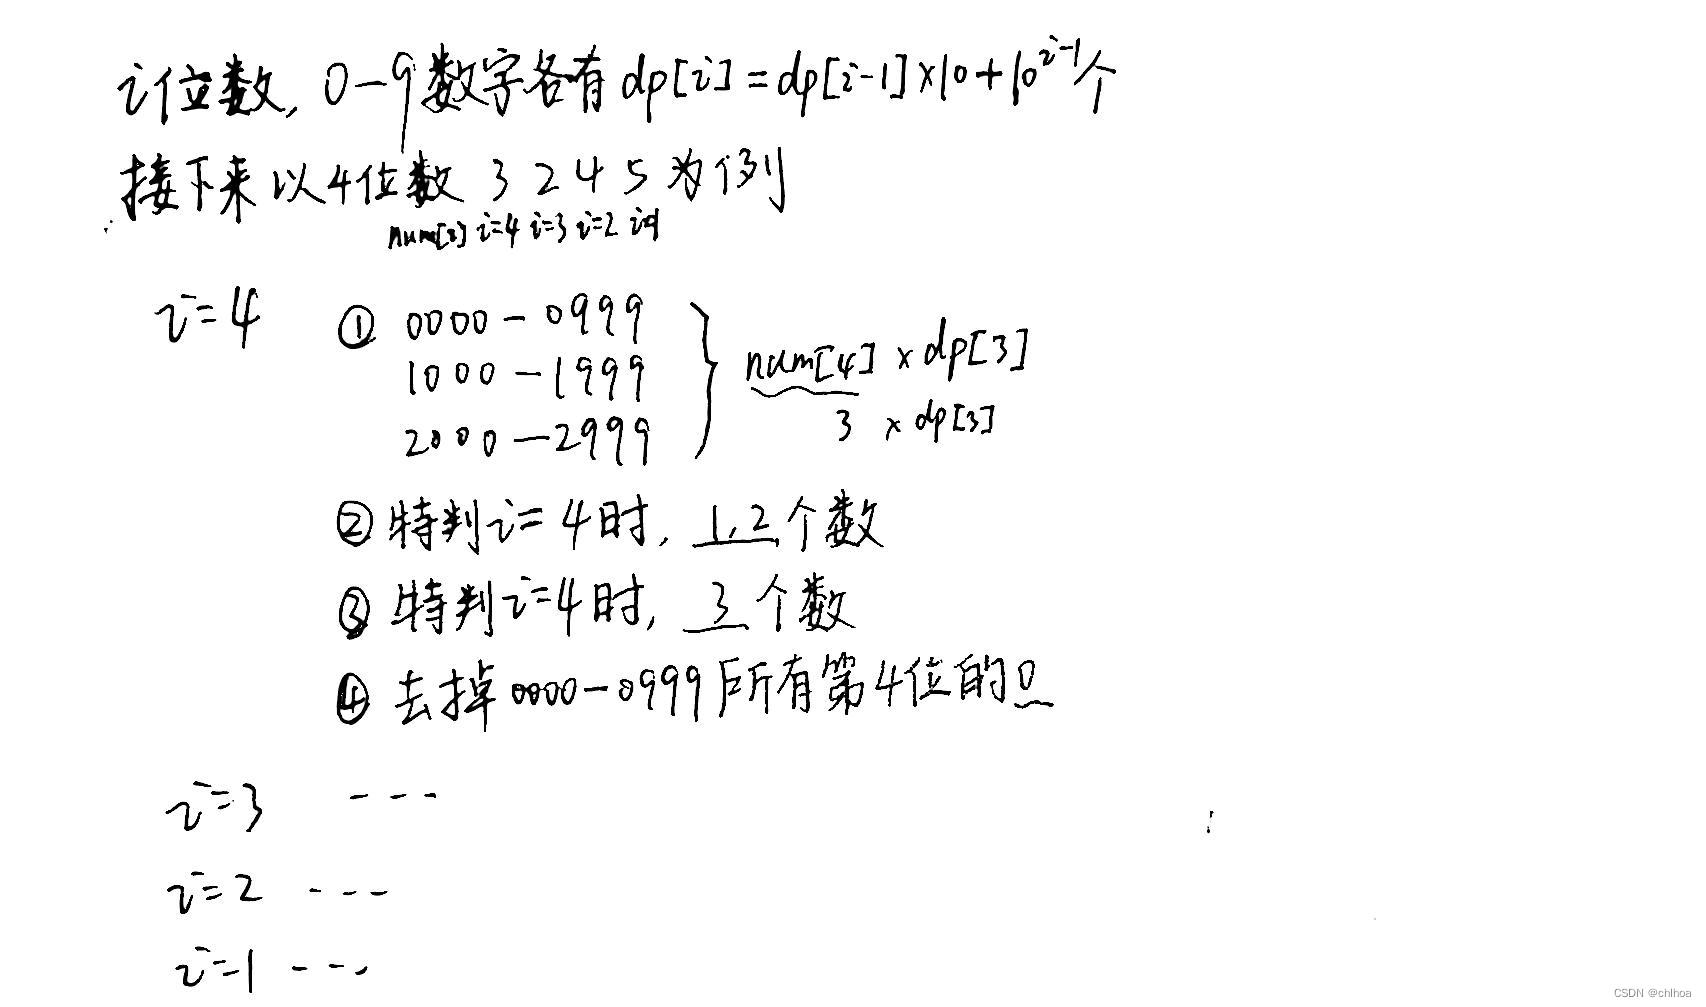 i位数, 0-9数字各有 dp[i] = dp[i-1]×10+10^{i-1}个
接下来以4位数 3 2 4 5 为例
num[i] i=4 i=3 i=2 i=1
i=4 ① 0000-0999
1000-1999
2000-2999
num[4] × dp[3]
3 × dp[3]
② 特判i=4时, 1,2个数
③ 特判i=4时, 3个数
④ 去掉0000-0999所有第4位的0
i=3 ---
i=2 ---
i=1 ---
CSDN @chlhoa